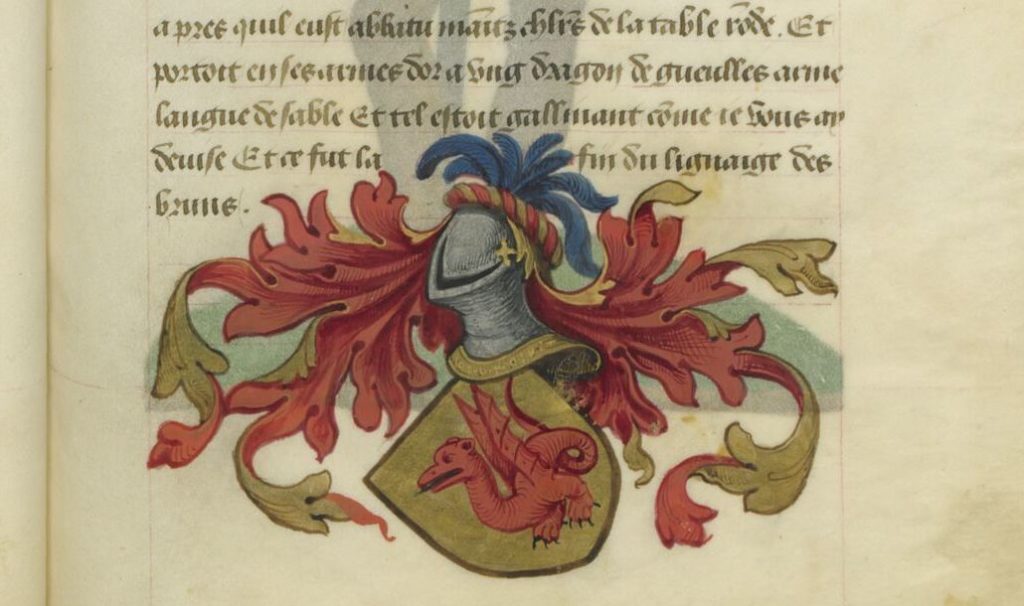 apres quil eust abbatu maītz chlrs de la table rōde. Et
portoit en ses armes dor a vng dragon de gueulles arme
langue de sable Et tel estoit gallinant cōme ie vous ay
deuise Et ce fut la fin du lignaige des
bruns.